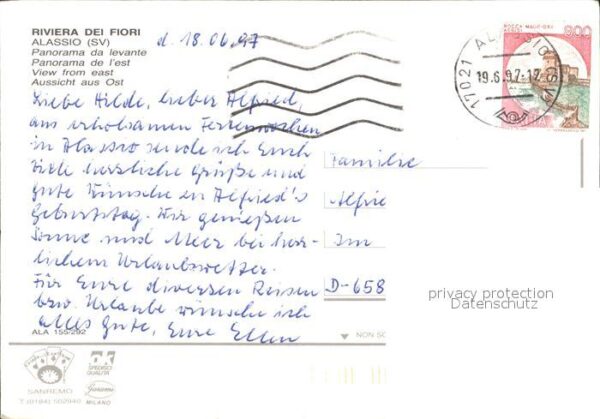 RIVIERA DEI FIORI
ALASSIO (SV)
Panorama da levante
Panorama de l'est
View from east
Aussicht aus Ost
d. 18.06.97
ROCCA MAGGIORE
800
17021 ALASSIO (SV)
19.6.97-17
Liebe Hilde, lieber Alfried,
aus erholsamen Ferienwochen
in Alassio sende ich Euch
viele herzliche Grüße und
gute Wünsche zu Alfried's
Geburtstag. Wir genießen
Sonne und Meer bei herr-
lichem Urlaubswetter.
Für Eure diversen Reisen
bzw. Urlaube wünsche ich
alles Gute, Eure Ellen
Familie
Alfrie
Im
D-658
privacy protection
Datenschutz
ALA 155/292
NON SC
SANREMO
T.(0184) 502940
SPEDISCI
QUALITÀ
MILANO